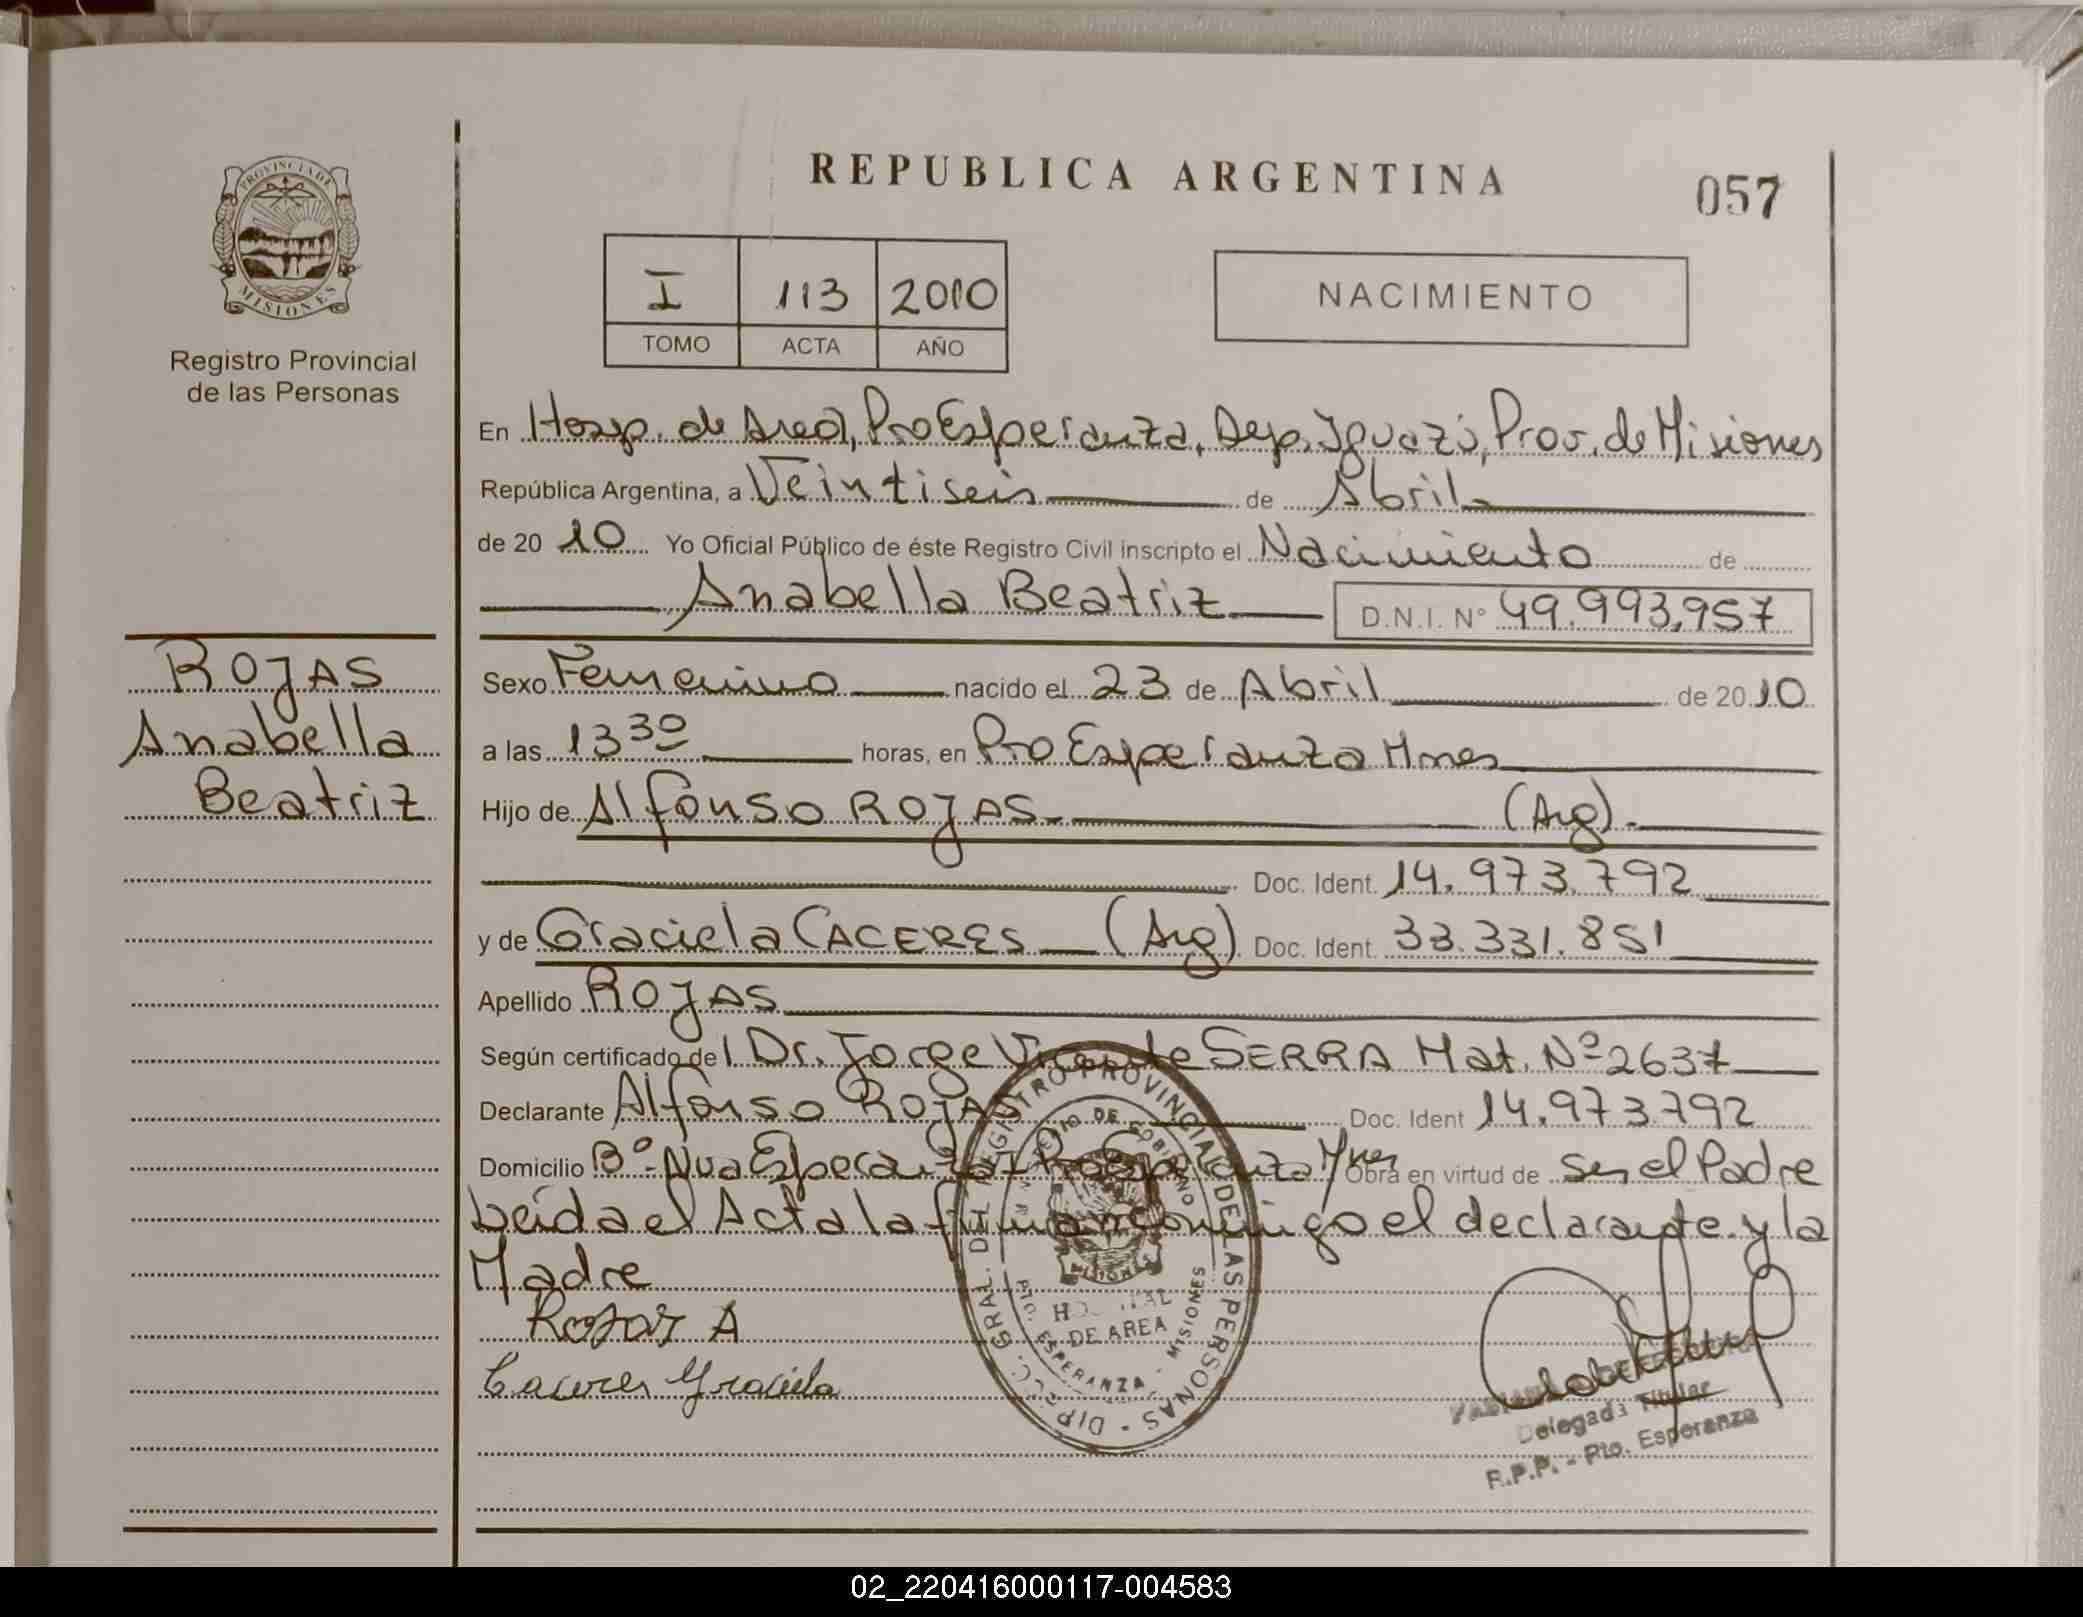 REPUBLICA ARGENTINA
057
PROVINCIA DE
MISIONES
Registro Provincial
de las Personas
I 113 2010
TOMO ACTA AÑO
NACIMIENTO
En Hosp. de Area, Pto Esperanza, Dep. Iguazú, Prov. de Misiones
República Argentina, a Veintiseis de Abril
de 20 10 Yo Oficial Público de éste Registro Civil inscripto el Nacimiento de
Anabella Beatriz D.N.I. N° 49.993.957
ROJAS
Anabella
Beatriz
Sexo Femenino nacido el 23 de Abril de 20 10
a las 13 30 horas, en Pto Esperanza Mnes
Hijo de Alfonso ROJAS (Arg).
Doc. Ident. 14.973.792
y de Graciela CACERES (Arg) Doc. Ident. 33.331.851
Apellido ROJAS
Según certificado del Dr. Jorge Vicente SERRA Mat. Nº 2637
Declarante Alfonso ROJAS Doc. Ident 14.973.792
Domicilio Bº Nva Esperanza - Pto Esperanza Mnes Obra en virtud de Ser el Padre
Leída el Acta la firman conmigo el declarante y la
Madre
Rojas A
Caceres Graciela
DIRECC. GRAL. DEL REGISTRO PROVINCIAL DE LAS PERSONAS
MINISTERIO DE GOBIERNO
MISIONES
DE AREA
PTO. ESPERANZA - MISIONES
Delegada Titular
R.P.P. - Pto. Esperanza
02_220416000117-004583